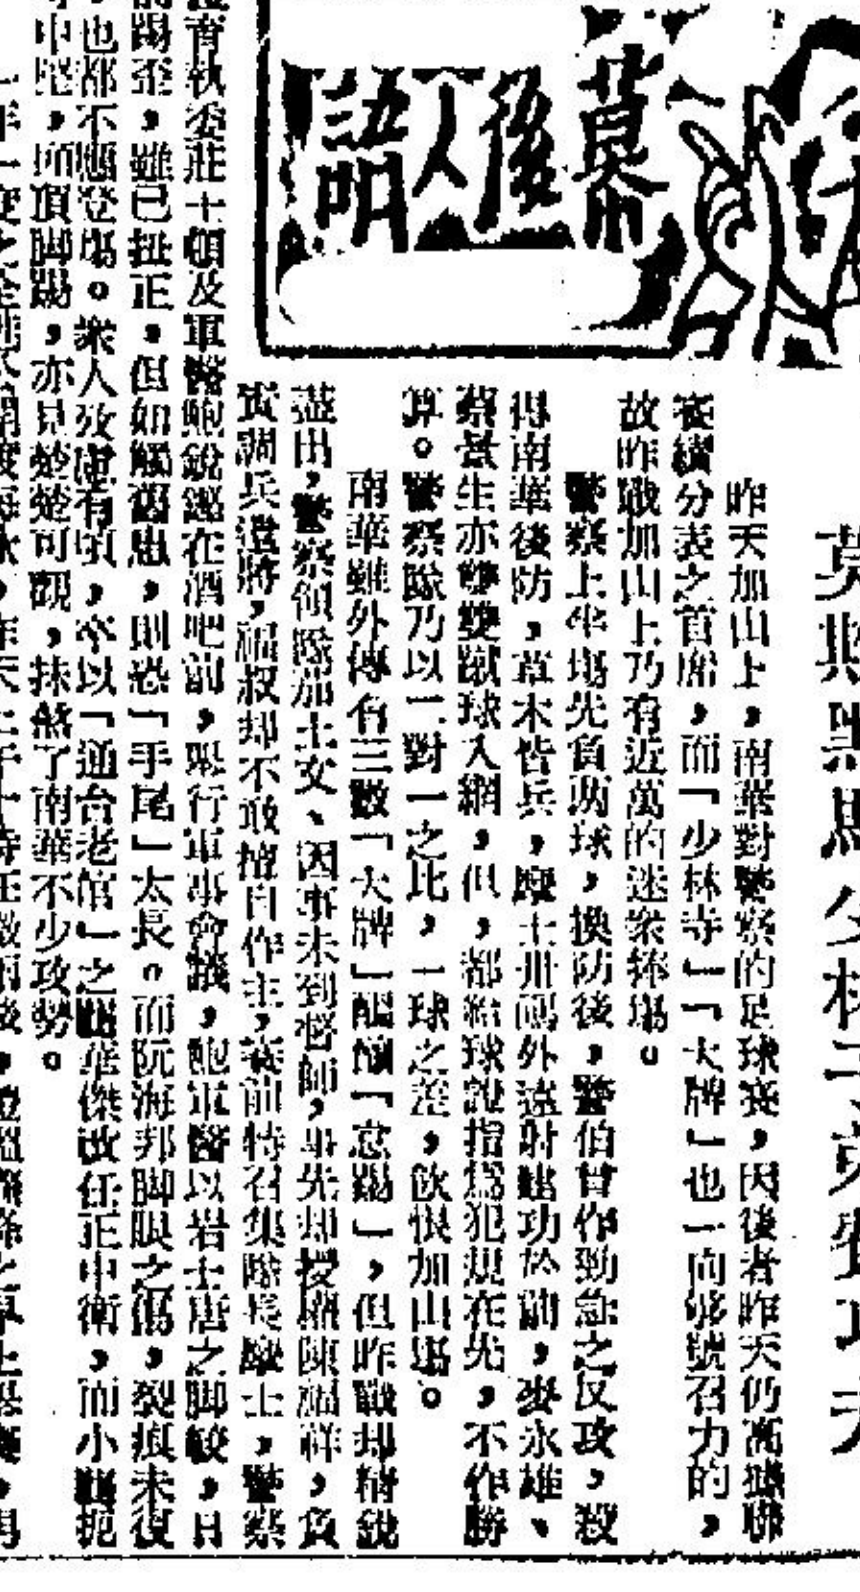 幕後人語
昨天加山上，南華對警察的足球賽，因後者昨天仍高踞聯
賽績分表之首席，而「少林寺」「大牌」也一向够號召力的，
故昨戰加山上乃有近萬的迷衆捧塲。
警察上半塲先負兩球，換防後，警伯曾作勁急之反攻，殺
得南華後防，草木皆兵，摩士卅碼外遠射建功於前，麥永雄、
蔡景生亦雙雙蹴球入網，但，都給球證指爲犯規在先，不作勝
算。警察隊乃以二對一之比，一球之差，飲恨加山塲。
南華雖外傳有三數「大牌」醞釀「怠踢」，但昨戰却精銳
盡出，警察領隊加士女、因事未到督師，事先却授權陳福祥，負
責調兵遣將，福叔却不敢擅自作主，賽前特召集隊長摩士，警察
體育執委莊士頓及軍醫鮑銳鑑在酒吧前，舉行軍事會議，鮑軍醫以岩士唐之脚骹，日
前踢歪，雖已扭正，但如觸舊患，則恐「手尾」太長。而阮海邦脚眼之傷，裂痕未復
，也都不應登塲。衆人攷慮有頃，卒以「通台老倌」之 華傑改任正中衛，而小 扼
守中堅，頭頂脚踢，亦見楚楚可觀，抹煞了南華不少攻勢。
一年一度之全 公開渡海泳，昨天上午十時